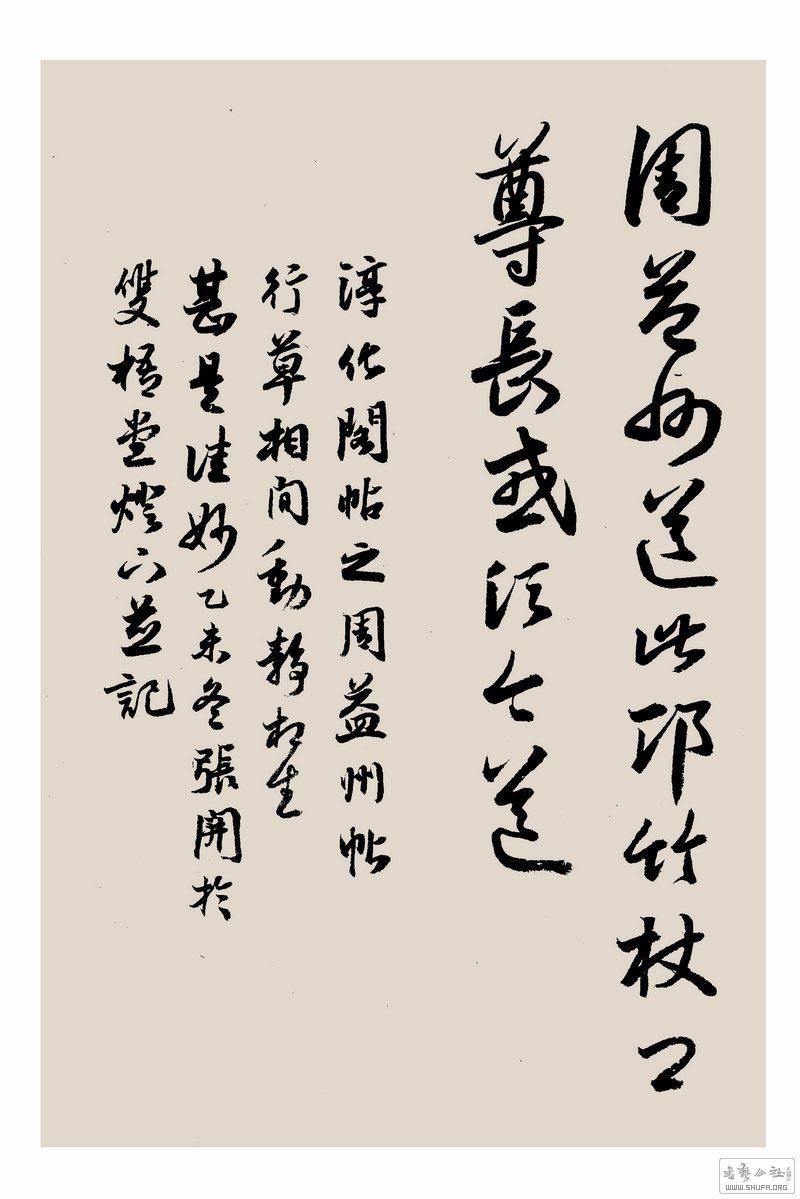 周益州送此邛竹杖卿
尊長或須今送
淳化閣帖之周益州帖
行草相間動靜相生
甚是佳妙乙未冬張開於
雙梧堂燈下並記
書藝公社
WWW.SHUFA.ORG